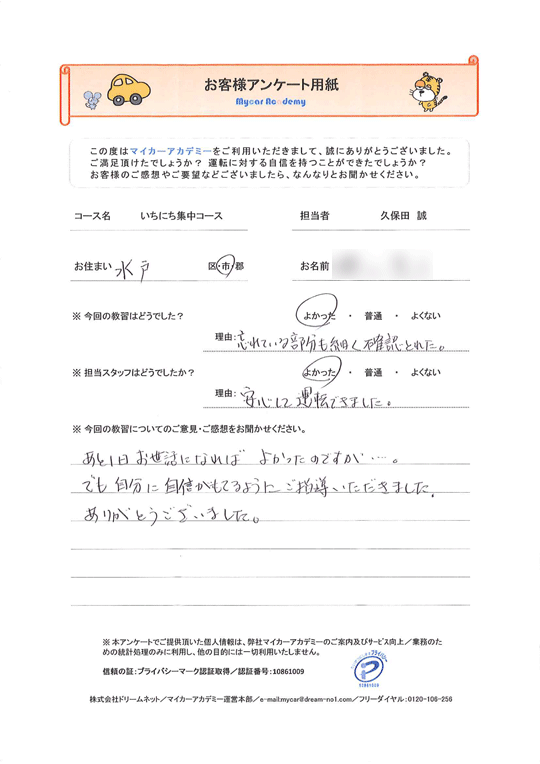 お客様アンケート用紙
Mycar Academy
この度はマイカーアカデミーをご利用いただきまして、誠にありがとうございました。
ご満足頂けたでしょうか？ 運転に対する自信を持つことができたでしょうか？
お客様のご感想やご要望などございましたら、なんなりとお聞かせください。
コース名 いちにち集中コース 担当者 久保田 誠
お住まい 水戸 区・市・郡 お名前
※ 今回の教習はどうでした？ よかった ・ 普通 ・ よくない
理由: 忘れている部分も細く確認とれた。
※ 担当スタッフはどうでしたか？ よかった ・ 普通 ・ よくない
理由: 安心して運転できました。
※ 今回の教習についてのご意見・ご感想をお聞かせください。
あと1日お世話になれば よかったのですが…。
でも自分に自信がもてるようにご指導いただきました。
ありがとうございました。
※ 本アンケートでご提供頂いた個人情報は、弊社マイカーアカデミーのご案内及びサービス向上／業務のた
めの統計処理のみに利用し、他の目的には一切利用いたしません。
信頼の証：プライバシーマーク認証取得／認証番号：10861009
10861009
株式会社ドリームネット／マイカーアカデミー運営本部／e-mail:mycar@dream-no1.com／フリーダイヤル：0120-106-256